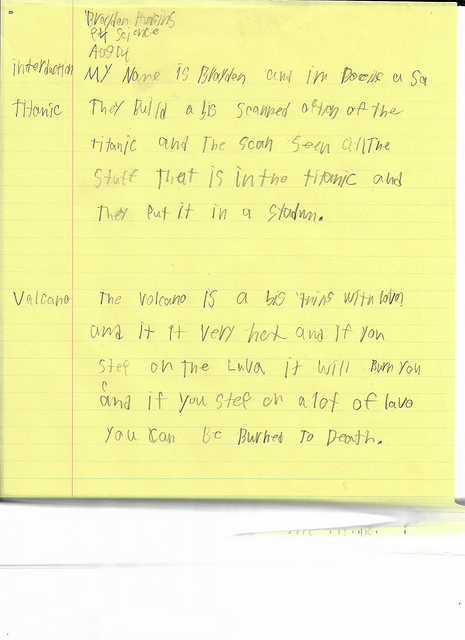 Brayden
Science
Aug 14
interduction MY Name is Brayden and im Doeis a Sa
Titanic They build a big scanned of the
titanic and The scan seen all The
Stuff That is in the titanic and
They Put it in a Stadum.
Valcano The volcano is a big thing with lava
and it it very hot and if you
step on The Lava it will Burn You
and if you step on a lot of lava
You can Be Burned To Death.